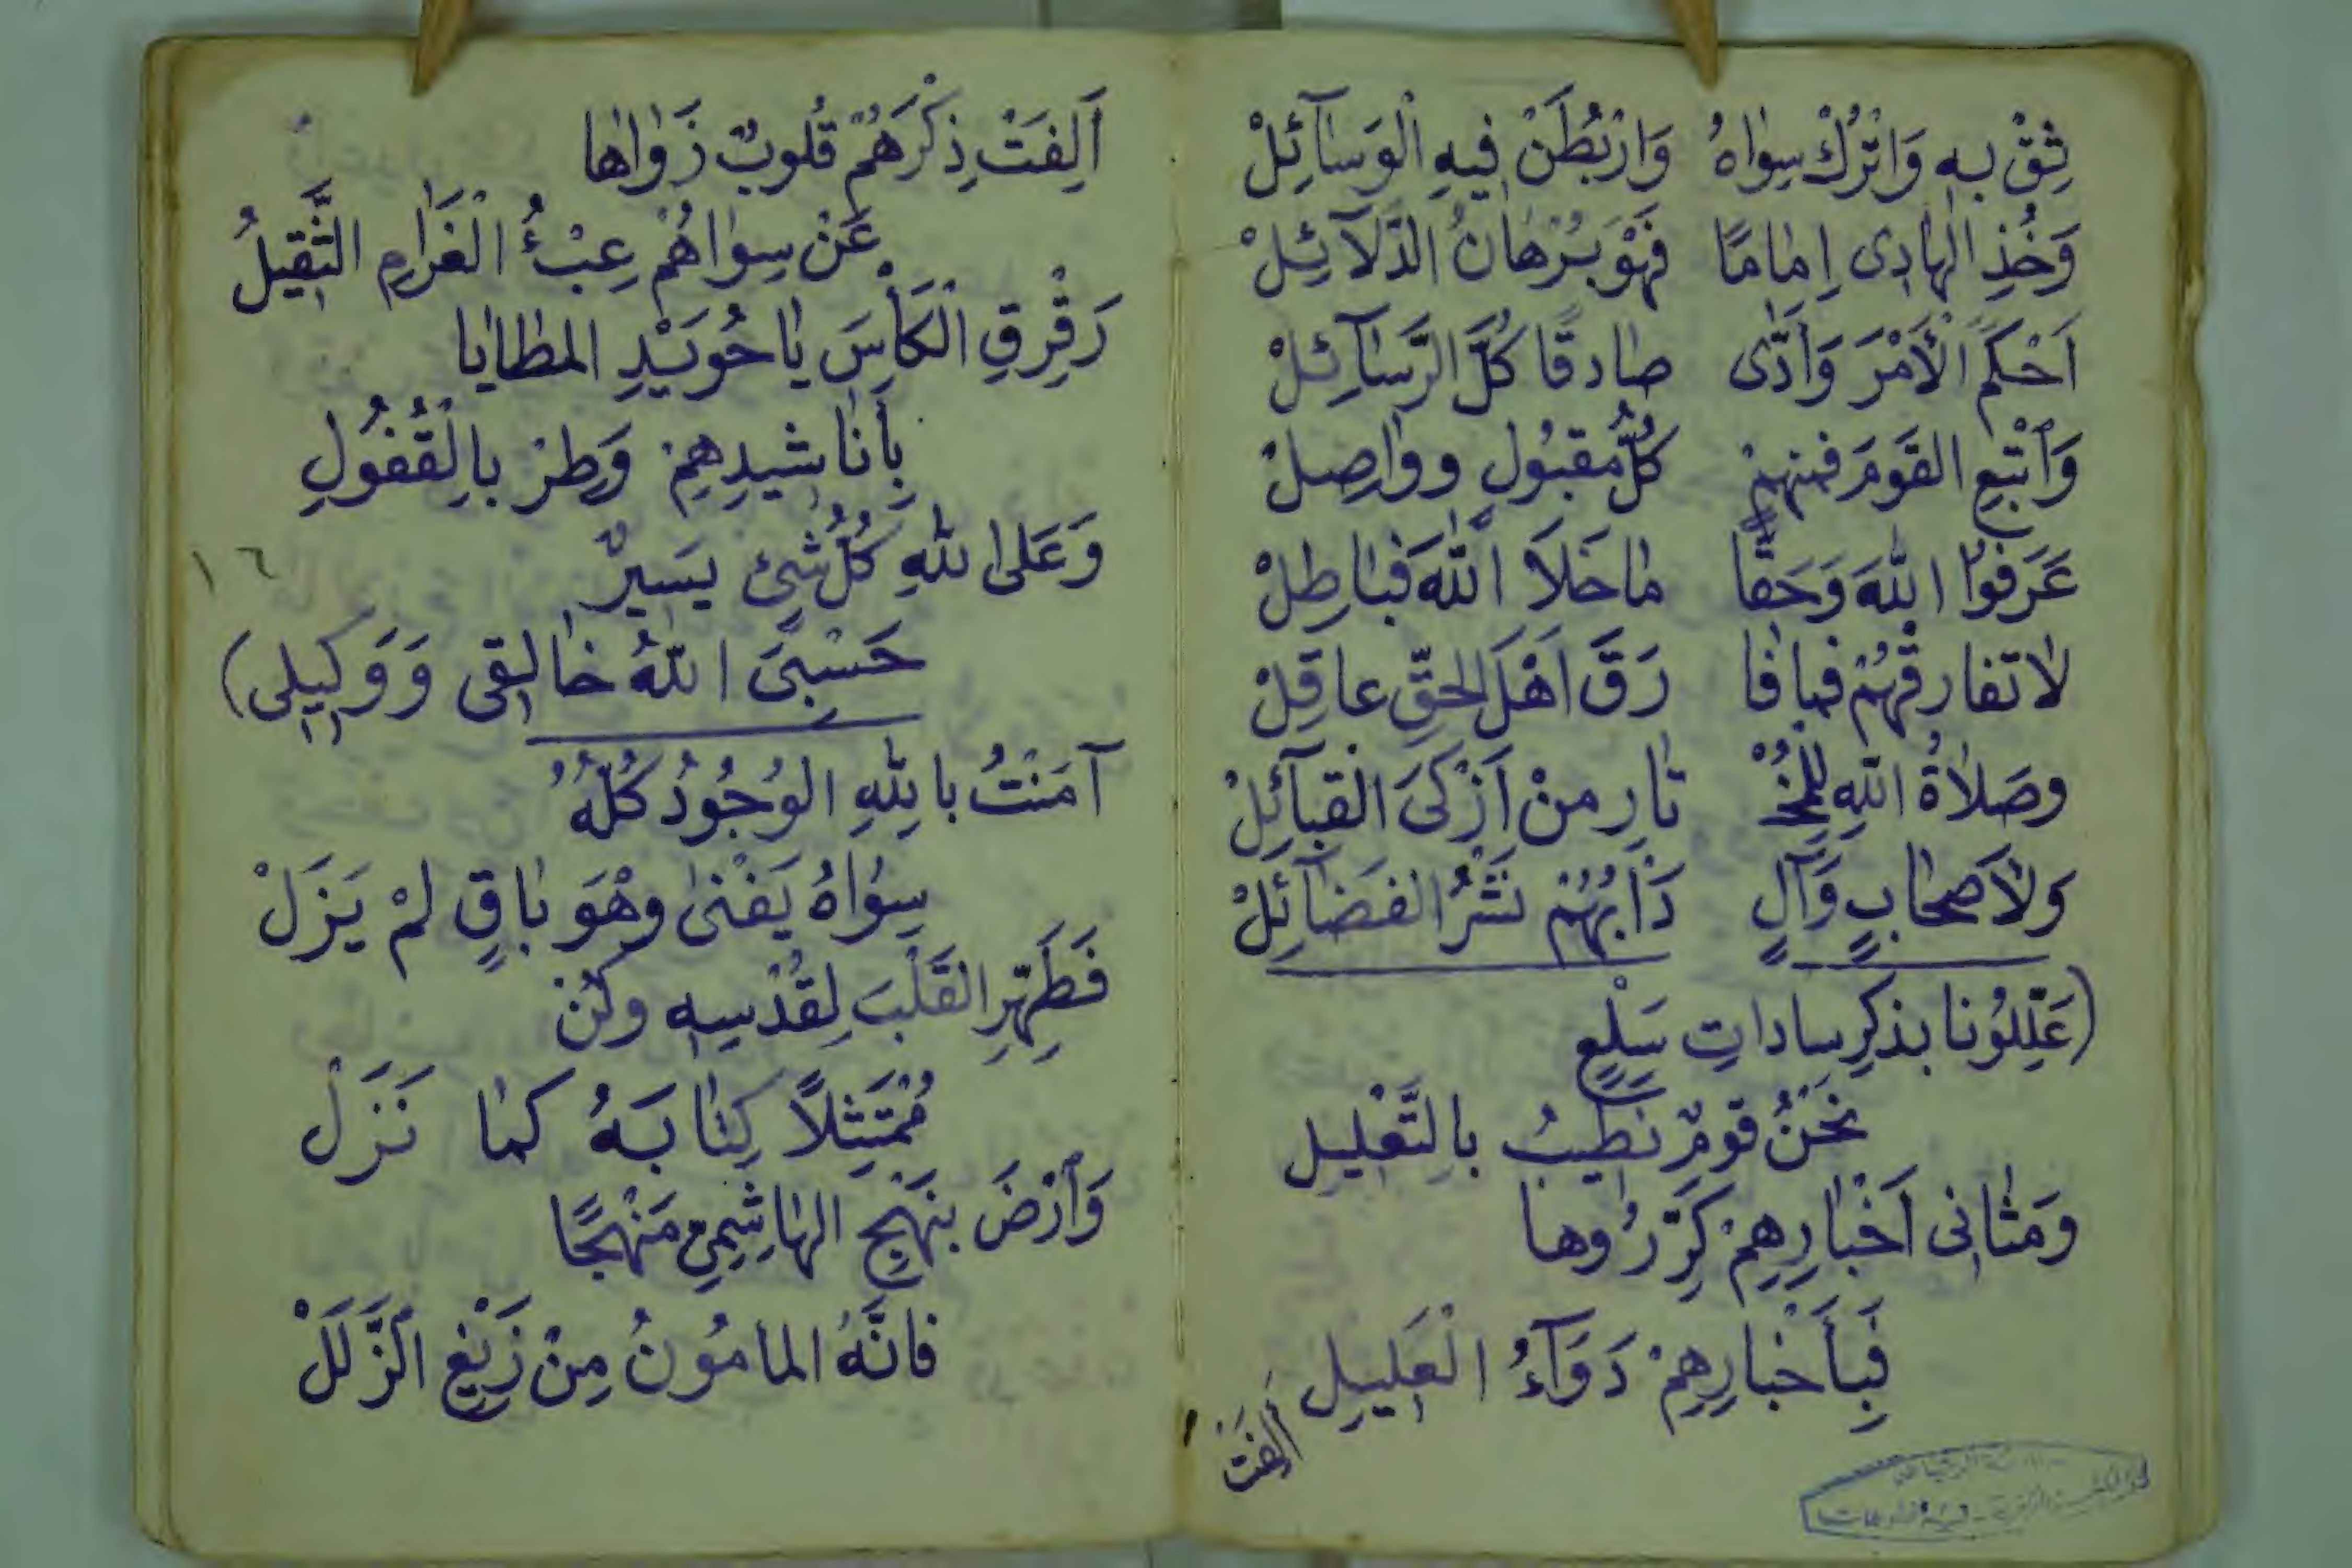 ثِقْ بِهِ وَاتْرُكْ سِوَاهُ وَارْبُطَنْ فِيهِ الْوَسَآئِلْ
وَخُذِ الْهَادِى اِمَامًا فَهْوَ بُرْهَانُ الدَّلَآئِلْ
اَحْكَمَ الْأَمْرَ وَأَدَّى صَادِقًا كُلَّ الرَّسَآئِلْ
وَاتْبَعِ القَوْمَ فَمِنْهُمْ كُلُّ مَقْبُولٍ وَوَاصِلْ
عَرَفُوا اللهَ وَحَقًّا مَا خَلَا اللهَ فَبَاطِلْ
لَا تُفَارِقْهُمْ فَمَا فَا رَقَ اَهْلَ الحَقِّ عَاقِلْ
وصَلَاةُ اللهِ لِلْمُخْـ ـتَارِ مِنْ اَزْكَى الْقَبَآئِلْ
وَلِاَصْحَابٍ وَآلٍ دَأْبُهُمْ نَشْرُ الفَضَآئِلْ
(عَلِّلُونَا بِذِكْرِ سَادَاتِ سَلْعٍ
نَحْنُ قَوْمٌ نَطِيبُ بِالتَّعْلِيلِ
وَمَثَانِى اَخْبَارِهِمْ كَرِّرُوهَا
فَبِأَخْبَارِهِمْ دَوَآءُ الْعَلِيلِ
أَلِفَتْ
اَلِفَتْ ذِكْرَهُمْ قُلُوبٌ زَوَاهَا
عَنْ سِوَاهُمْ عِبْءُ الْغَرَامِ الثَّقِيلُ
رَقْرِقِ الْكَأْسَ يَا حُوَيْدِ المَطَايَا
بِأَنَاشِيدِهِمْ وَطِرْ بِالْقُفُولِ
وَعَلَى اللهِ كُلُّ شَيْءٍ يَسِيرٌ
١٦
حَسْبِىَ اللهُ خَالِقِى وَوَكِيلِى)
آمَنْتُ بِاللهِ الْوُجُودُ كُلُّهُ
سِوَاهُ يَفْنَى وَهْوَ بَاقٍ لَمْ يَزَلْ
فَطَهِّرِ الْقَلْبَ لِقُدْسِهِ وَكُنْ
مُمْتَثِلًا كِتَابَهُ كَمَا نَزَلْ
وَارْضَ بِنَهْجِ الْهَاشِمِيِّ مَنْهَجًا
فَاِنَّهُ الْمَأْمُونُ مِنْ زَيْغِ الزَّلَلْ